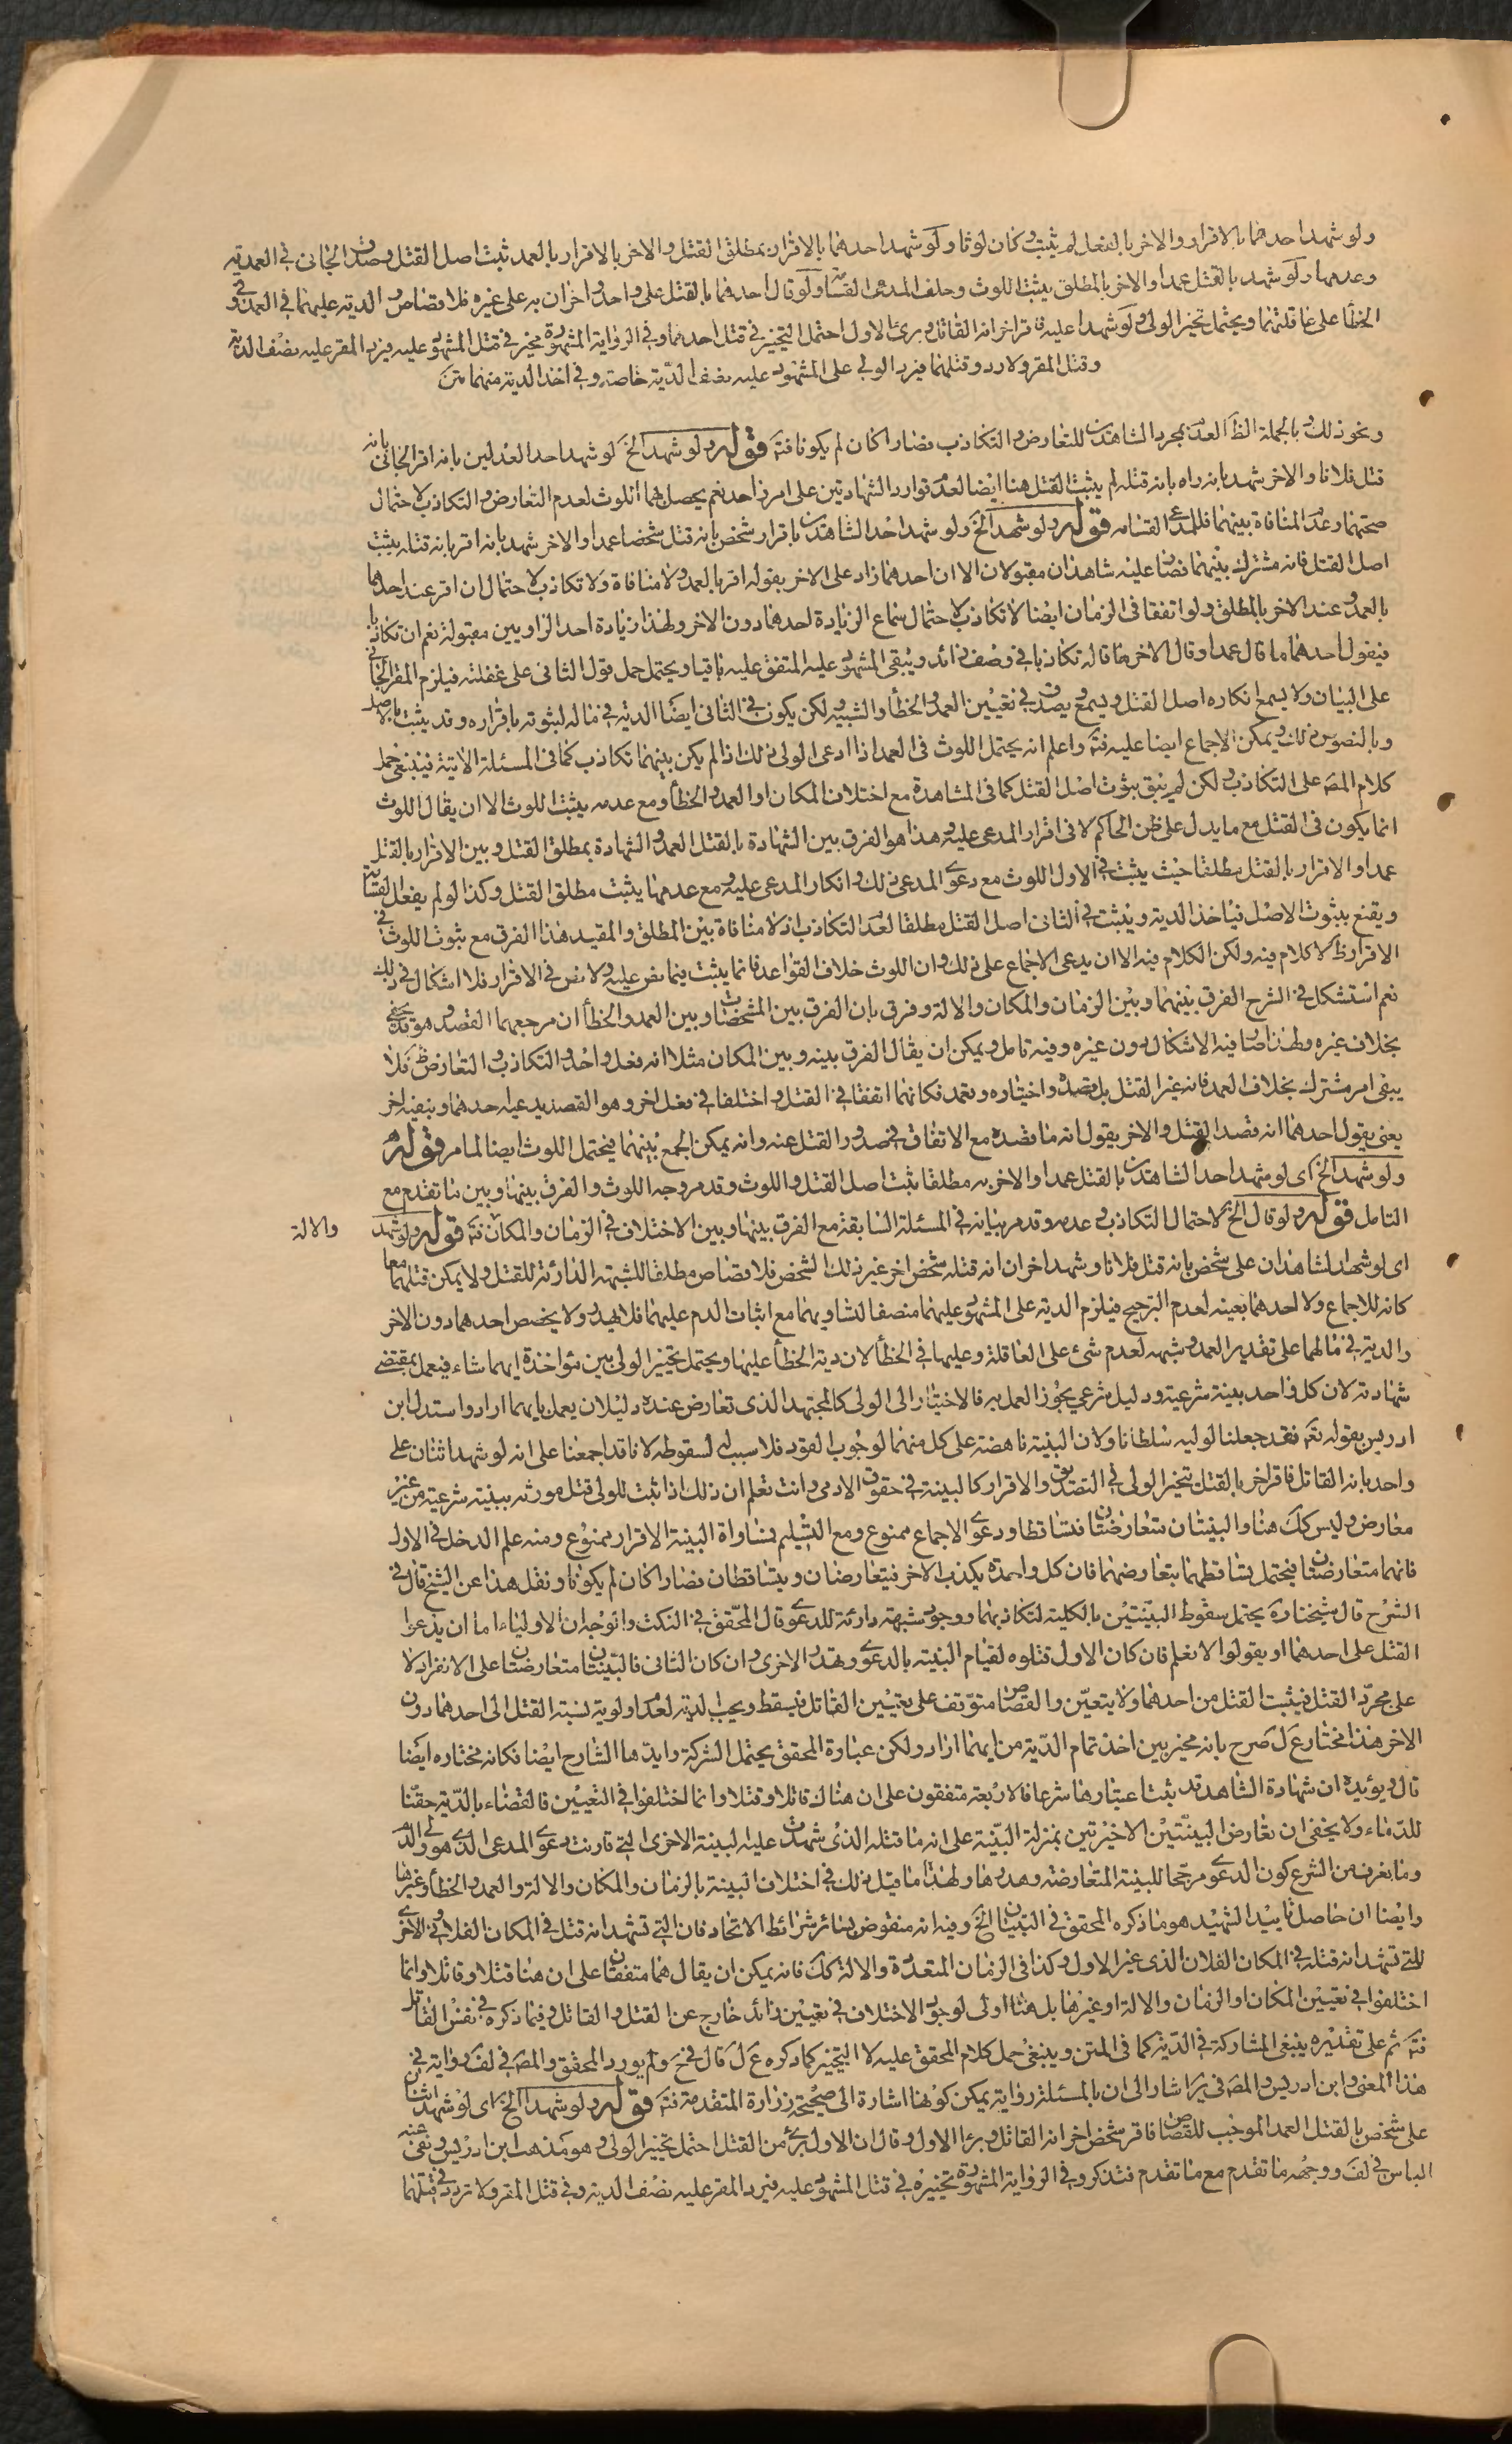 ولو شهد احدهما بالاقرار والاخر بالفعل لم يثبت وكان لوثا ولو شهد احدهما بالاقرار بمطلق القتل والاخر بالاقرار بالعمد ثبت اصل القتل وصدق الجانى فى العمدية
وعدمها ولو شهد بالقتل عمدا والاخر بالمطلق يثبت اللوث وحلف المدعى القسامة ولو قال احدهما بالقتل على واحد واخران به على غيره فلا قصاص والدية عليهما فى العمد وفى
الخطأ على عاقلتهما ويحتمل تخير الولى ولو شهدا عليه فاقر اخر انه القاتل وبرئ الاول احتمل التخير فى قتل احدهما وفى الرواية المشهورة مخير فى قتل المشهود عليه فيرد المقر عليه نصف الدية
وقتل المقر ولا رد وقتلهما فيرد الولى على المشهود عليه نصف الدية خاصة وفى اخذ الدية منهما
ونحو ذلك وبالجملة الظ العدم بمجرد الشاهدين للتعارض والتكاذب فصارا كان لم يكونا فتة قوله ولو شهد الخ لو شهد احد العدلين بانه اقر الجانى بانه
قتل فلانا والاخر شهد بانه راه بانه قتله لم يثبت القتل هنا ايضا لعدم توارد الشهادتين على امر واحد نعم يحصل بهما اللوث لعدم التعارض والتكاذب لاحتمال
صحتهما وعدم المنافاة بينهما فللمدعى القسامة قوله ولو شهد الخ ولو شهد احد الشاهدين باقرار شخص بانه قتل شخصا عمدا والاخر شهد بانه اقر بانه قتله يثبت
اصل القتل فانه مشترك بينهما فصا عليه شاهدان مقبولان الا ان احدهما زاد على الاخر بقوله اقر بالعمد ولا منافاة ولا تكاذب لاحتمال ان اقر عند احدهما
بالعمد وعند الاخر بالمطلق ولو اتفقا فى الزمان ايضا لا تكاذب لاحتمال سماع الزيادة احدهما دون الاخر ولهذا زيادة احد الراويين مقبولة نعم ان تكاذبا
فيقول احدهما ما قال عمدا وقال الاخر ما قاله تكاذبا فى وصف زائد ويبقى المشهود عليه المتفق عليه باقيا ويحتمل حمل قول الثانى على غفلته فيلزم المقر الجانى
على البيان ولا يسمع انكاره اصل القتل ويسمع ويصدق فى تعيين العمد والخطأ والشبيه لكن يكون فى الثانى ايضا الدية فى ماله لثبوته باقراره وقد يثبت بالاصل
وبالنصوص ذلك ويمكن الاجماع ايضا عليه فتة واعلم انه يحتمل اللوث فى العمد اذا ادعى الولى ذلك اذا لم يكن بينهما تكاذب كما فى المسئلة الاتية فينبغى حمل
كلام المصـ على التكاذب ولكن لم يبق ثبوت اصل القتل كما فى المشاهدة مع اختلاف المكان او العمد والخطأ ومع عدمه يثبت اللوث الا ان يقال اللوث
انما يكون فى القتل مع ما يدل على ظن الحاكم لا فى اقرار المدعى عليه وهذا هو الفرق بين الشهادة بالقتل العمد والشهادة بمطلق القتل وبين الاقرار بالقتل
عمدا والاقرار بالقتل مطلقا حيث يثبت فى الاول اللوث مع دعوى المدعى ذلك وانكار المدعى عليه ومع عدمها يثبت مطلق القتل وكذا لو لم يفعل القسامة
ويقنع بثبوت الاصل فياخذ الدية ويثبت فى الثانى اصل القتل مطلقا لعدم التكاذب اذ لا منافاة بين المطلق والمقيد هذا الفرق مع ثبوت اللوث فى
الاقرار ظ لا كلام فيه ولكن الكلام فيه الا ان يدعى الاجماع على ذلك وان اللوث خلاف القواعد فانما يثبت فيما نص عليه ولا نص فى الاقرار فلا اشكال فى ذلك
نعم استشكل فى الشرح الفرق بينهما وبين الزمان والمكان والالة وفرق بان الفرق بين المشخصات وبين العمد والخطأ ان مرجعهما القصد وهو قد يخفى
بخلاف غيره ولهذا صا فيه الاشكال دون غيره وفيه تامل ويمكن ان يقال الفرق بينه وبين المكان مثلا انه فعل واحد والتكاذب والتعارض ظ فلا
يبقى امر مشترك بخلاف العمد فانه غير القتل بل قصده واختياره وتعمده فكانهما اتفقا فى القتل واختلفا فى فعل اخر وهو القصد يدعيه احدهما وينفيه اخر
يعنى يقول احدهما انه قصد القتل والاخر يقول انه ما قصده مع الاتفاق فى صدور القتل عنه وانه يمكن الجمع بينهما فيحتمل اللوث ايضا لما مر قوله
ولو شهد الخ اى لو شهد احد الشاهدين بالقتل عمدا والاخر به مطلقا ثبت اصل القتل واللوث وقد مر وجه اللوث والفرق بينها وبين ما تقدم مع
التامل قوله ولو قال الخ لاحتمال التكاذب وعدمه وقد مر بيانه فى المسئلة السابقة مع الفرق بينها وبين الاختلاف فى الزمان والمكان فتة قوله ولو شهد
والالة
اى لو شهد الشاهدان على شخص بانه قتل فلانا وشهد اخران انه قتله شخص اخر غير ذلك الشخص فلا قصاص مطلقا للشبهة الدارئة للقتل ولا يمكن قتلهما معا
كانه للاجماع ولا احدهما بعينه لعدم الترجيح فيلزم الدية على المشهود عليهما منصفا لتساويهما مع اثبات الدم عليهما فلا يهدر ولا يخصص احدهما دون الاخر
والدية فى مالهما على تقدير العمد وشبهه لعدم شئ على العاقلة وعليها فى الخطأ لان دية الخطأ عليها ويحتمل تخيير الولى بين مؤاخذة ايهما شاء فيعمل بمقتضى
شهادته لان كل واحد بينة شرعية ودليل شرعي يجوز العمل به فالاختيار الى الولى كالمجتهد الذى تعارض عنده دليلان يعمل بايهما اراد واستدل ابن
ادريس بقوله تعـ فقد جعلنا لوليه سلطانا ولان البينة ناهضة على كل منهما لوجوب القود فلا سبيل لسقوطه لانا قد اجمعنا على انه لو شهد اثنان على
واحد بانه القاتل فاقر اخر بالقتل تخير الولى فى التصديق والاقرار كالبينة فى حقوق الادمى وانت تعلم ان ذلك اذا ثبت للولى قتل مورثه ببينة شرعية من غير
معارض وليس كك هنا والبينتان متعارضتان فتساقطا ودعوى الاجماع ممنوع ومع التسليم مساواة البينة الاقرار ممنوع ومنه علم الدخل فى الاول
فانهما متعارضتان فيحتمل تساقطهما بتعارضهما فان كل واحدة يكذب الاخر فيتعارضان ويتساقطان فصارا كان لم يكونا ونقل هذا عن الشيخ قال فى
الشرح قال شيخنا ره يحتمل سقوط البينتين بالكلية لتكاذبهما ووجود شبهة دارئة للدعوى قال المحقق فى النكت والوجه ان الاولياء اما ان يدعوا
القتل على احدهما او يقولوا لا نعلم فان كان الاول قتلوه لقيام البينة بالدعوى وتهدر الاخرى وان كان الثانى فالبينتان متعارضتان على الانفراد لا
على مجرد القتل فيثبت القتل من احدهما ولا يتعين والقصاص متوقف على تعيين القاتل فيسقط ويجب الدية لعدم اولوية نسبة القتل الى احدهما دون
الاخر هذا مختار ع ل صرح بانه مخير بين اخذ تمام الدية من ايهما اراد ولكن عبارة المحقق يحتمل الشركة وايدها الشارح ايضا فكانه مختاره ايضا
قال ويؤيده ان شهادة الشاهد قد ثبت اعتبارها شرعا فالاربعة متفقون على ان هناك قاتلا وقتلا وانما اختلفوا فى التعيين فالقضاء بالدية حقنا
للدماء ولا يخفى ان تعارض البينتين الاخيرتين بمنزلة البينة على انه ما قتله الذى شهدت عليه البينة الاخرى التى قارنت دعوى المدعى الذى هو ولى الدم
وما يعرف من الشرع كون الدعوى مرجحا للبينة المتعارضة وهدرها ولهذا ما قيل ذلك فى اختلاف البينة بالزمان والمكان والالة والعمد والخطأ وغيرها
وايضا ان حاصل تاييد الشهيد هو ما ذكره المحقق فى البينتان الخ وفيه انه منقوض بسائر شرائط الاتحاد فان التى تشهد انه قتل فى المكان الفلانى والاخرى
التى تشهد انه قتله فى المكان الفلان الذى غير الاول وكذا فى الزمان المتعددة والالة كك فانه يمكن ان يقال هما متفقتان على ان هنا قتلا وقاتلا وانما
اختلفوا فى تعيين المكان او الزمان والالة او غيرها بل هنا اولى لوجود الاختلاف فى تعيين زائد خارج عن القتل والقاتل وفيما ذكره فى نفس القاتل
فتة ثم على تقديره ينبغى المشاركة فى الدية كما فى المتن وينبغى حمل كلام المحقق عليه لا التخير كما ذكره ع ل قال فى ولم يورد المحقق والمصـ فى لف رواية فى
هذا المعنى وابن ادريس والمصـ فى ير اشار الى ان بالمسئلة رواية يمكن كونها اشارة الى صحيحة زرارة المتقدمة فتة قوله ولو شهد الخ اى لو شهد اثنان
على شخص بالقتل العمد الموجب للقصاص فاقر شخص اخر انه القاتل وبرء الاول وقال ان الاول برئ من القتل احتمل تخيير الولى وهو مذهب ابن ادريس ونفى عنه
الباس فى لف ووجهه ما تقدم مع ما تقدم فتذكر وفى الرواية المشهورة تخييره فى قتل المشهود عليه فيرد المقر عليه نصف الدية وفى قتل المقر ولا ترديد وفى قتلهما